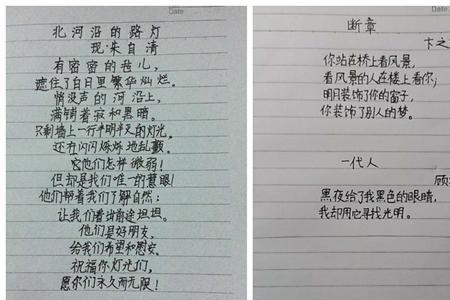 Date
北河沿的路灯
现·朱自清
有密密的毡儿,
遮住了白日里繁华灿烂。
悄没声的河沿上,
满铺着寂和黑暗。
只剩墙上一行半明半灭的灯光,
还在闪闪烁烁地乱颤。
它们怎样微弱!
但却是我们唯一的慧眼!
他们帮着我们了解自然;
让我们看出前途坦坦。
他们是好朋友,
给我们希望和慰安。
祝福你灯光们,
愿你们永久而无限!
Date
断章
卞之
你站在桥上看风景,
看风景的人在楼上看你;
明月装饰了你的窗子,
你装饰了别人的梦。
一代人
顾
黑夜给了我黑色的眼睛,
我却用它寻找光明。